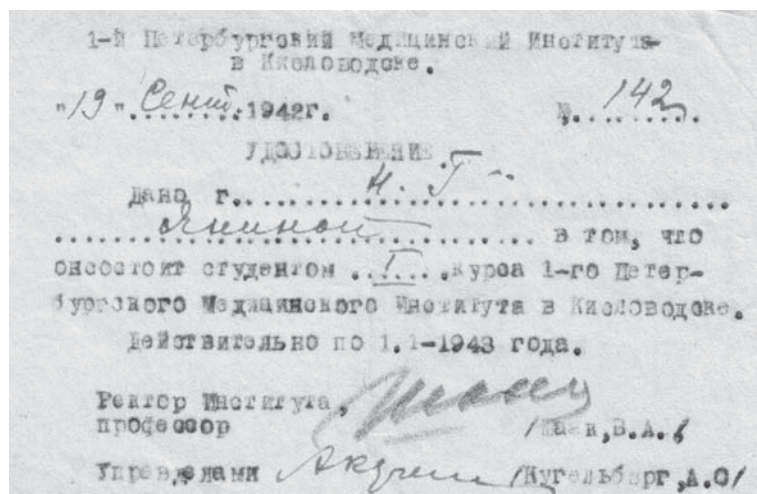 1-й Петербургский Медицинский Института
в Кисловодске.
"19" Сент. 1942г. №. 142
УДОСТОВЕРЕНИЕ.
Дано г. Н. Г.
Яниной в том, что
он состоит студентом I курса 1-го Петер-
бургского Медицинского Института в Кисловодске.
Действительно по 1.1-1943 года.
Ректор Института,
профессор /Шаак,В.А./
Управделами /Кугельберг,А.О/